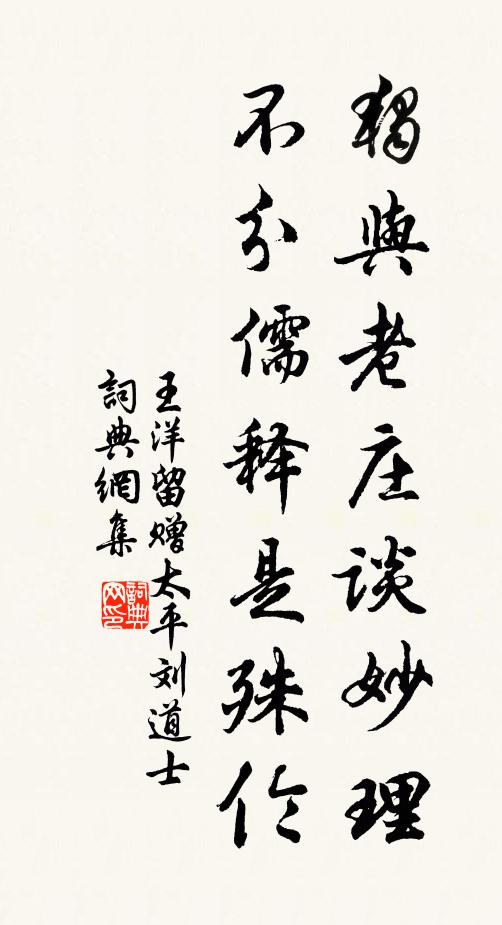 獨與老庄谈妙理
不分儒释是殊伦
王洋留赠太平刘道士
詞典網集
詞典网印